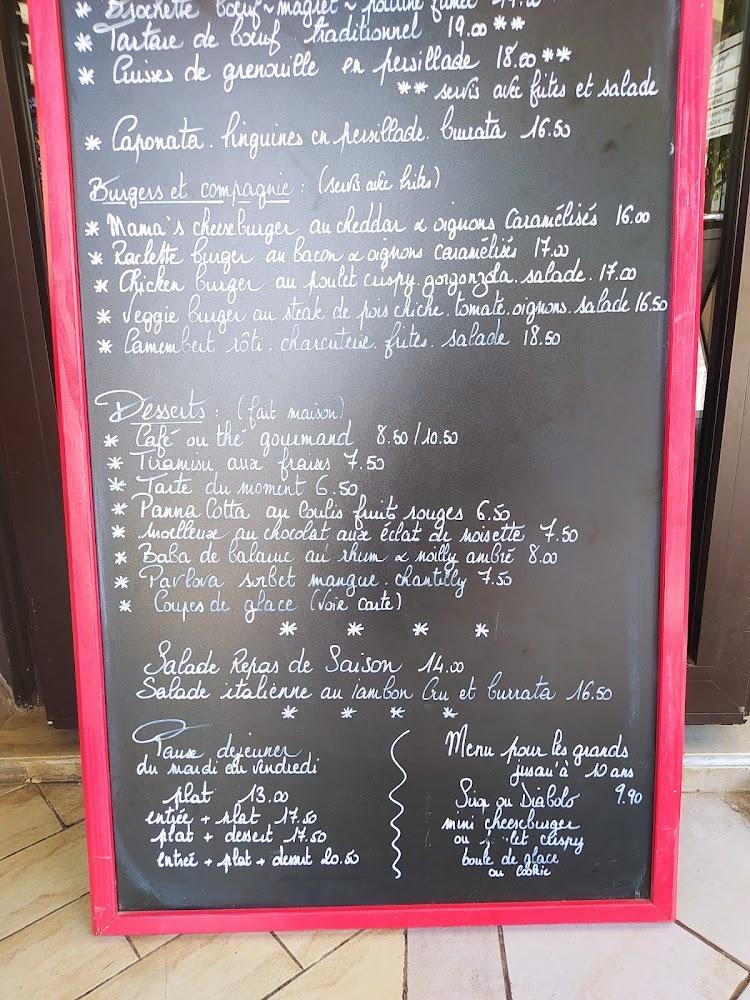 * Brochette bœuf ~ magret ~ poitrine fumée
* Tartare de bœuf traditionnel 19.00 **
* Cuisses de grenouille en persillade 18.00 **
** servis avec frites et salade
* Caponata. linguines en persillade. burrata 16.50
Burgers et compagnie : (servis avec frites)
* Mama's cheeseburger au cheddar & oignons caramélisés 16.00
* Raclette burger au bacon & oignons caramélisés 17.00
* Chicken burger au poulet crispy. gorgonzola. salade. 17.00
* Veggie burger au steak de pois chiche. tomate. oignons. salade 16.50
* Camembert rôti. charcuterie. frites. salade 18.50
Desserts : (fait maison)
* Café ou thé gourmand 8.50 / 10.50
* Tiramisu aux fraises 7.50
* Tarte du moment 6.50
* Panna Cotta au coulis fruits rouges 6.50
* Moelleux au chocolat aux éclat de noisette 7.50
* Baba de balauc au rhum & noilly ambré 8.00
* Pavlova sorbet mangue. chantilly 7.50
* Coupes de glace (voir carte)
* * * *
Salade Repas de Saison 14.00
Salade italienne au jambon cru et burrata 16.50
* * * *
Pause déjeuner
du mardi au vendredi
plat 13.00
entrée + plat 17.50
plat + dessert 17.50
entrée + plat + dessert 20.50
Menu pour les grands
jusqu'à 10 ans
Sirop ou Diabolo 9.90
mini cheeseburger
ou crispy
boule de glace
ou cookie